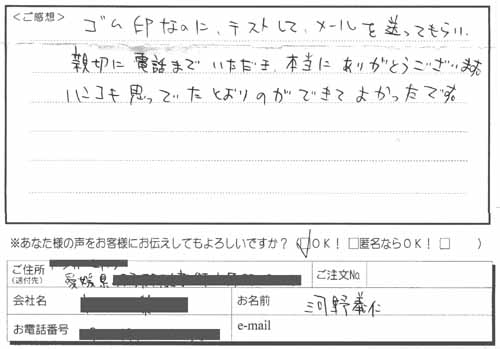 <ご感想>
ゴム印なのに、テストして、メールを送ってもらい、
親切に電話までいただき、本当にありがとうございます。
ハンコも思ってたとおりのができてよかったです。
※あなた様の声をお客様にお伝えしてもよろしいですか？（☑OK！ □匿名ならOK！ □ ）
ご住所 愛媛県 ご注文No.
(送付先)
会社名 お名前 河野義仁
お電話番号 e-mail